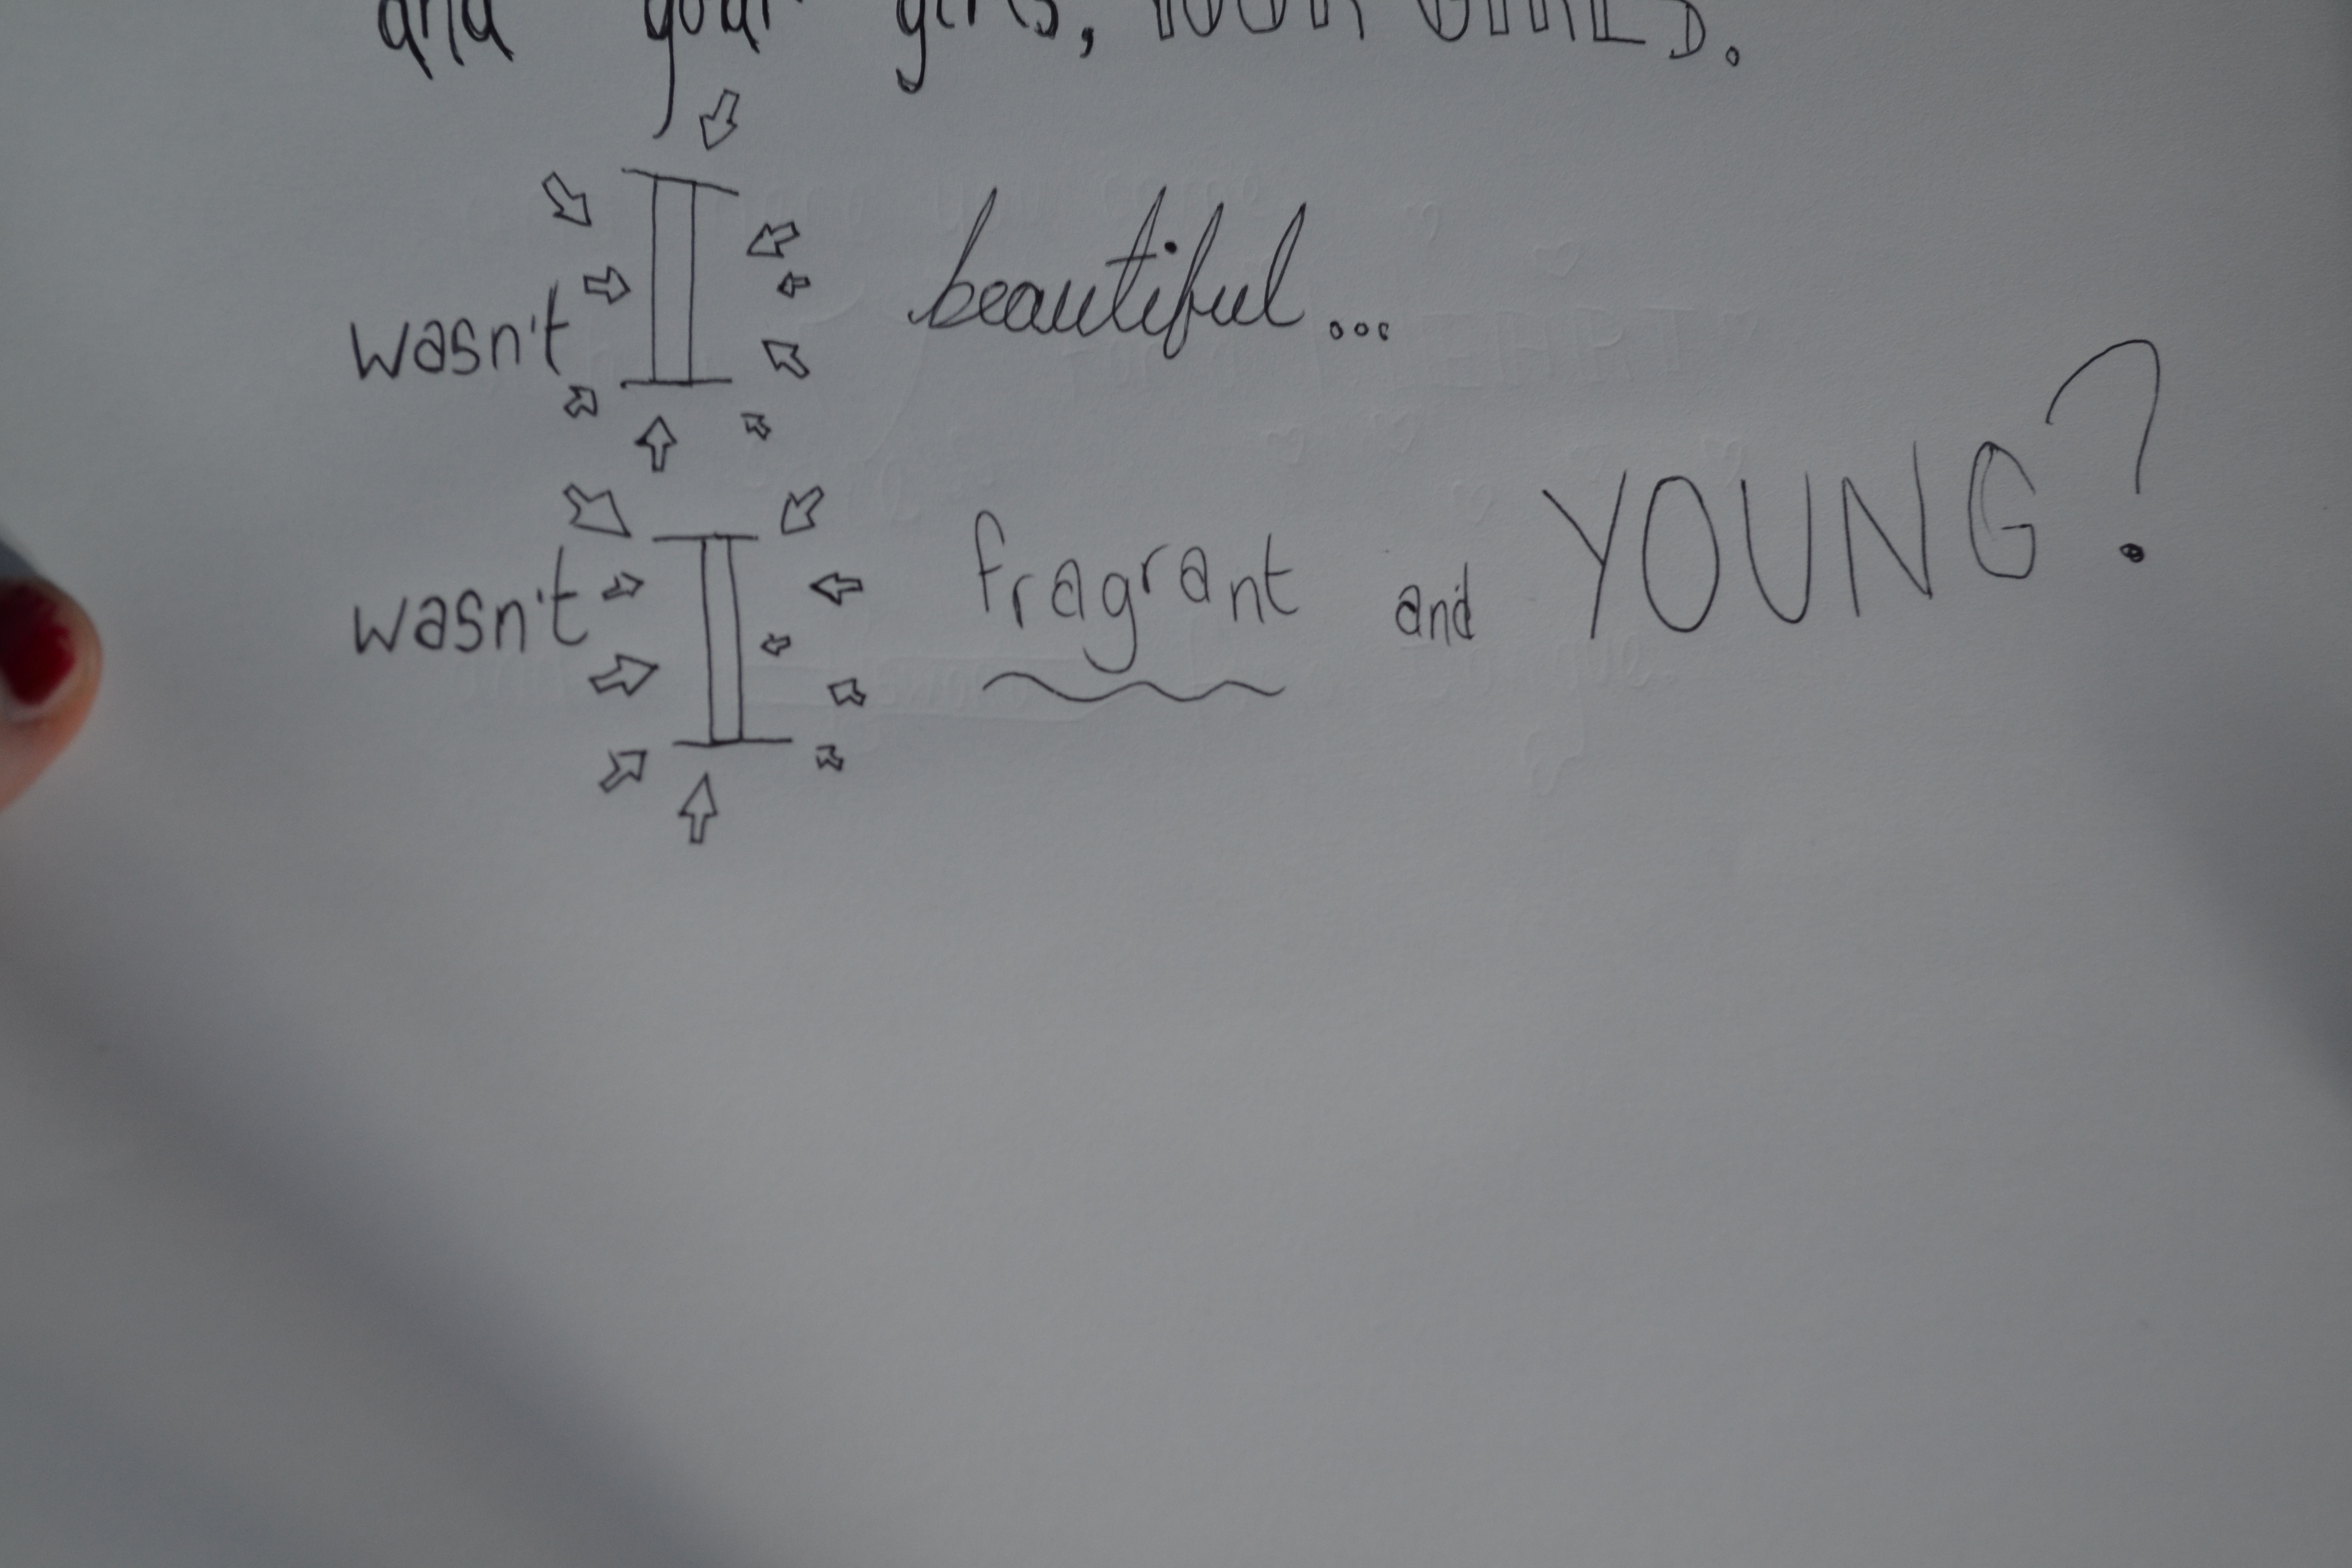 and your girls, YOUR GIRLS.
wasn't I beautiful...
wasn't I fragrant and YOUNG?